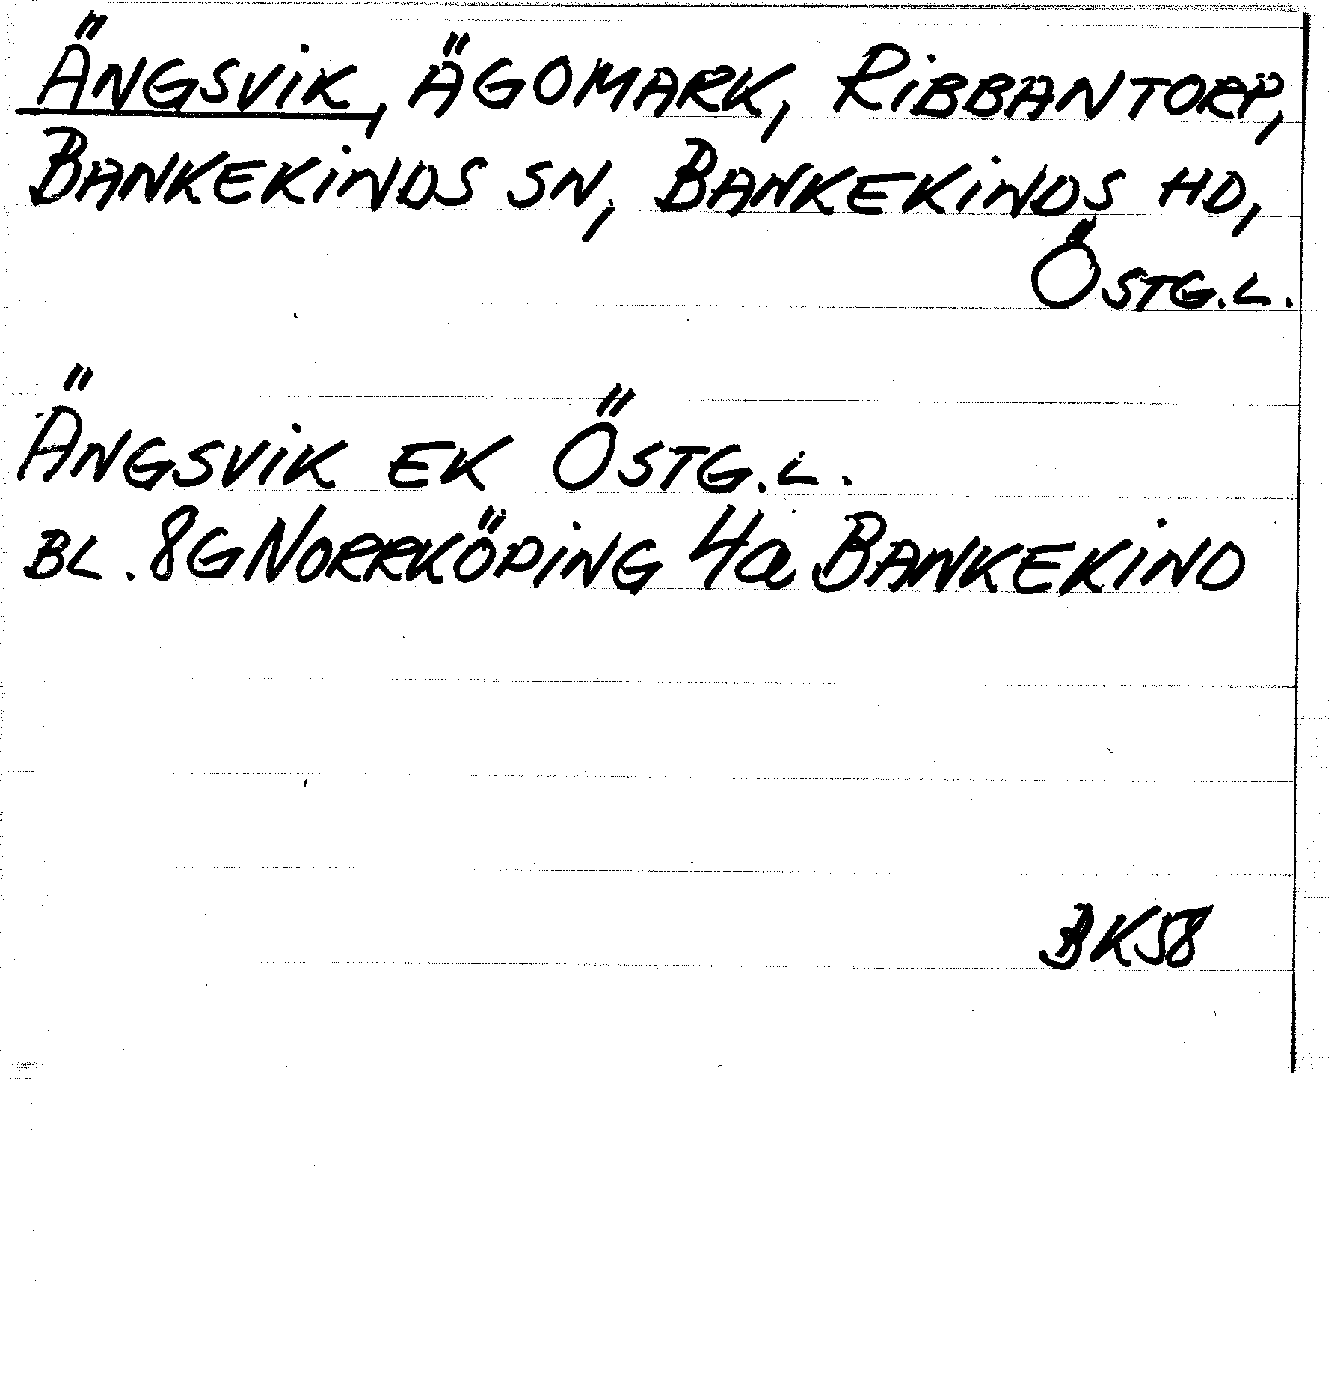 ÄNGSVIK, ÄGOMARK, RIBBANTORP,
BANKEKINDS SN, BANKEKINDS HD,
ÖSTG.L.
ÄNGSVIK EK ÖSTG.L.
BL. 8G NORRKÖPING 4a BANKEKIND
BK58